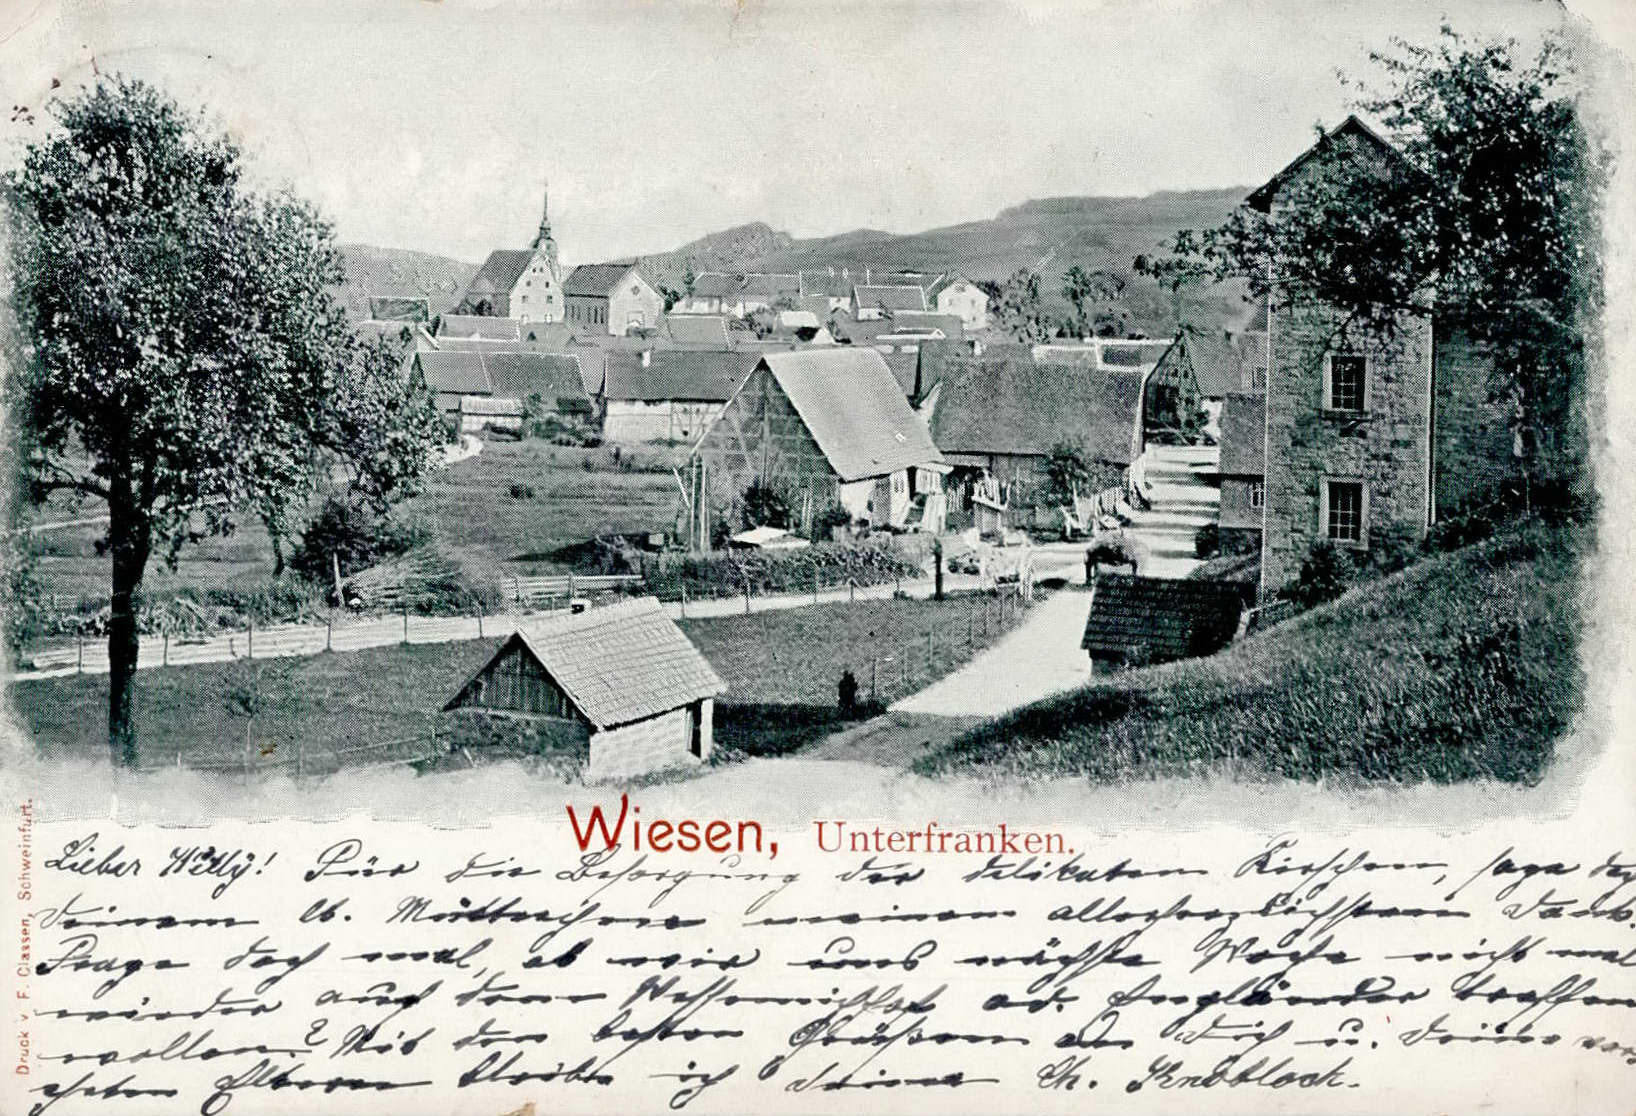 Wiesen, Unterfranken.
Lieber Willy! Für die Besorgung der delikaten Kirschen, sage doch
deinem lb. Mütterchen meinen allerherzlichsten Dank.
Frage doch mal, ob wir uns nächste Woche nicht mal
wieder auf dem od. Engländer treffen
wollen? Mit den besten Grüßen an Dich u. deine ver-
ehrten Eltern bleibe ich deine Ch. Knoblock.
Druck v. F. Classen, Schweinfurt.